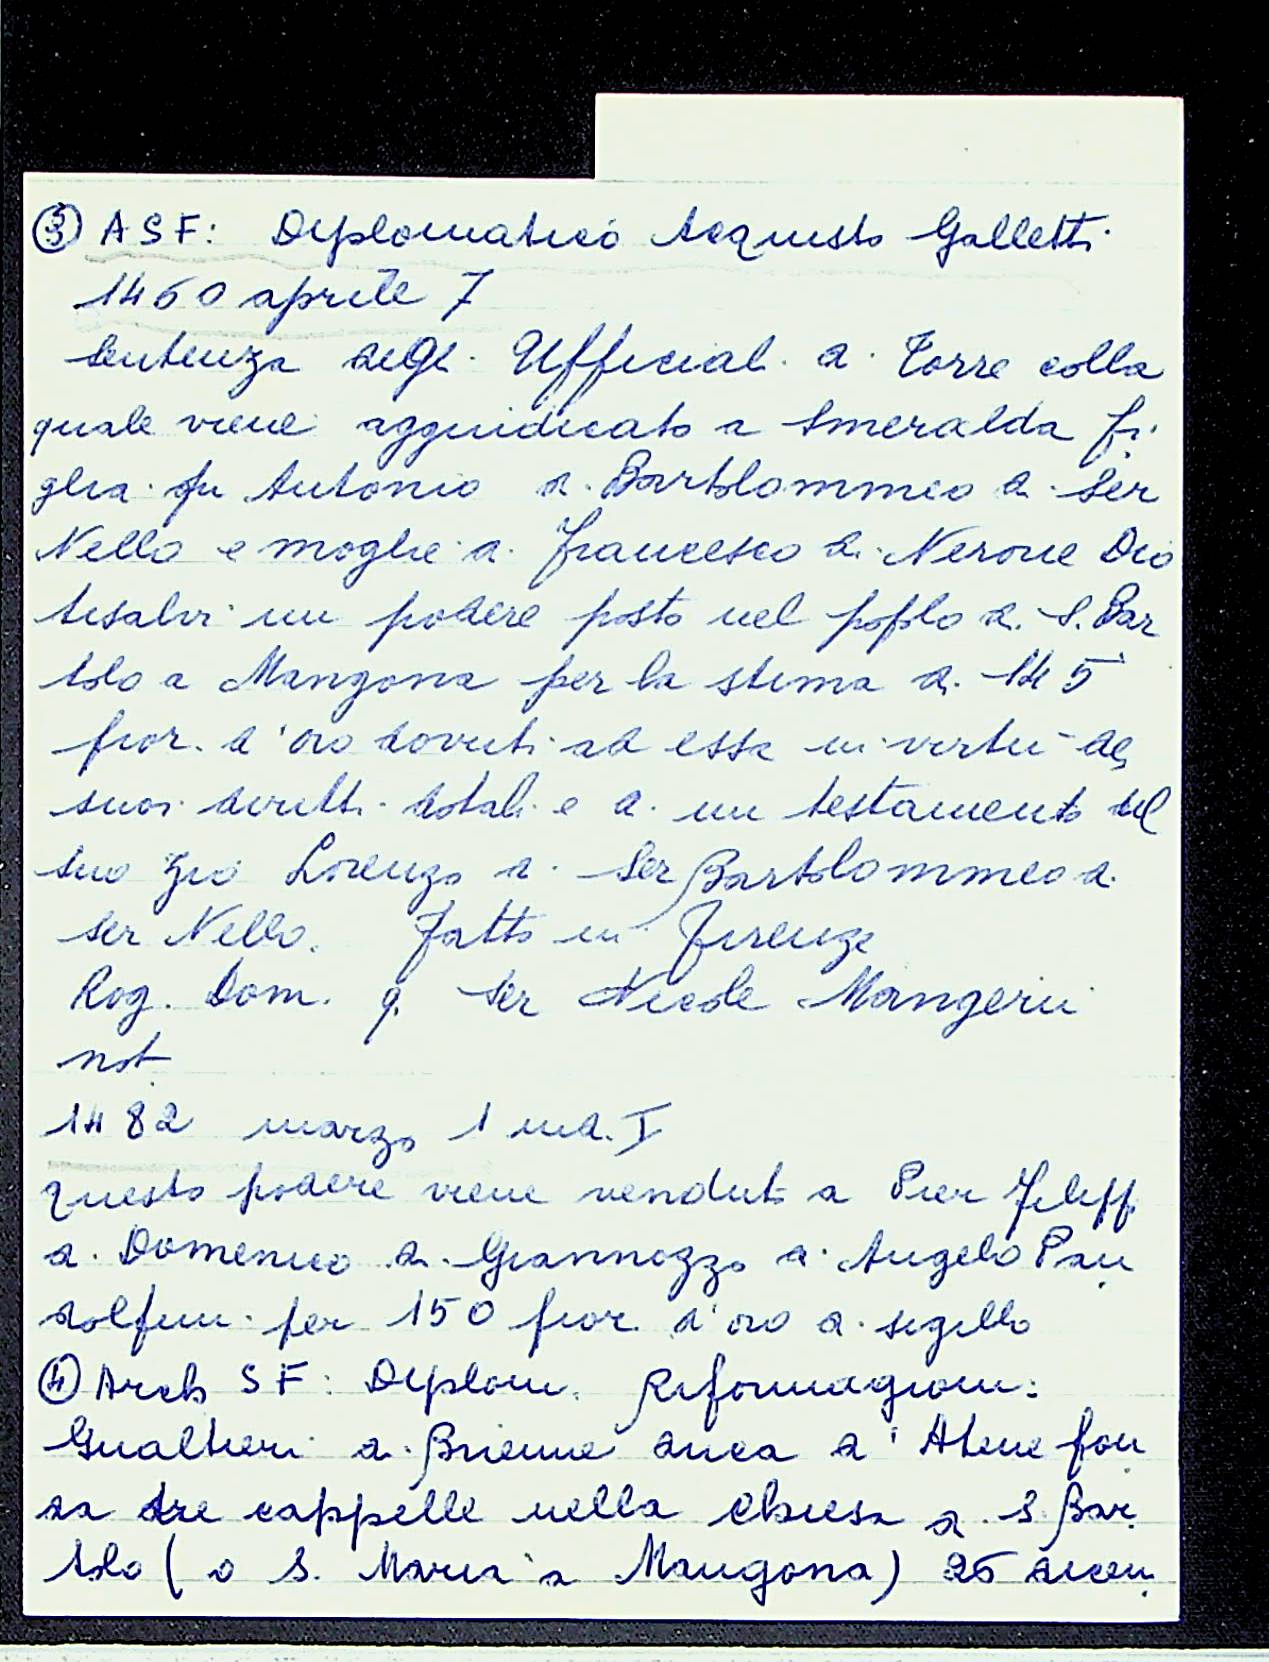 ③ ASF: Diplomatico Acquisto Galletti
1460 aprile 7
Sentenza degli Ufficiali di Torre colla
quale viene aggiudicato a Smeralda fi
glia fu Antonio di Bartolommeo di Ser
Nello e moglie di Francesco di Nerone Dio
tisalvi un podere posto nel popolo di S. Bar
tolo a Mangona per la stima di 145
fior. d'oro dovuti ad essa in virtù de
suoi diritti dotali e di un testamento del
suo zio Lorenzo di Ser Bartolommeo di
Ser Nello. Fatto in Firenze
Rog. Dom. q. Ser Nicole Mangerii
not
1482 marzo 1 ind. I
questo podere viene venduto a Pier Filipp.
di Domenico di Giannozzo di Angelo Pan
dolfini per 150 fior. d'oro di sigillo
④ Arch SF: Diplom. Riformagioni:
Gualtieri di Brienne duca d'Atene fon
da tre cappelle nella chiesa di S. Bar
tolo (o S. Maria a Mangona) 26 dicem